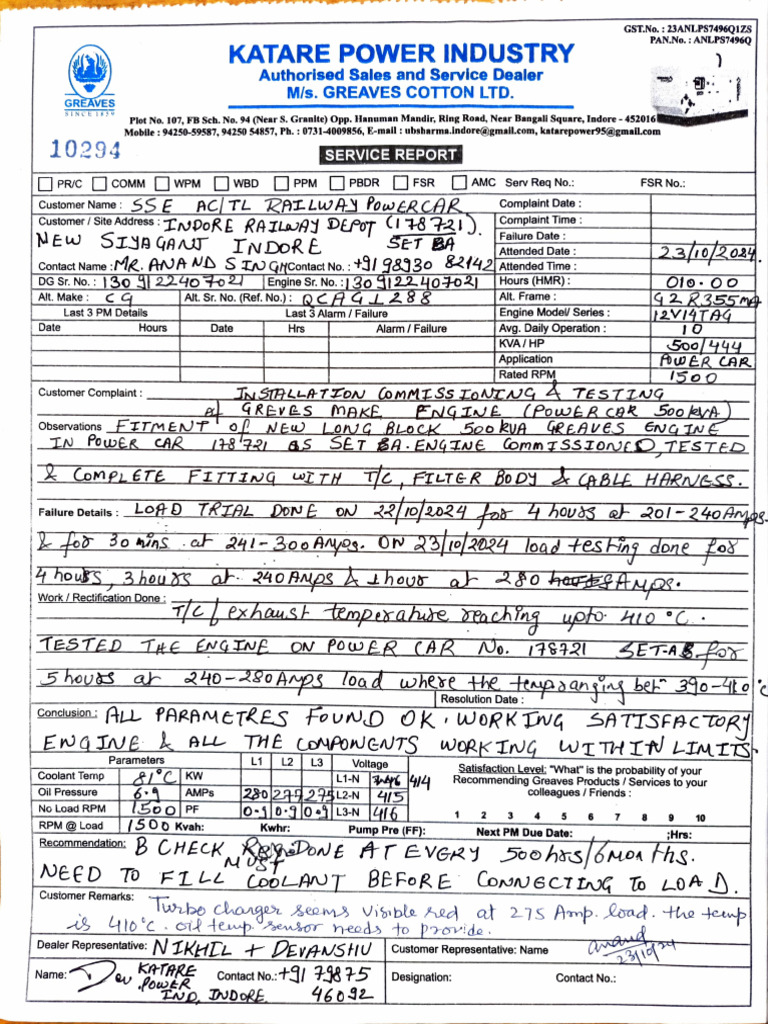 GST.No. : 23ANLPS7496Q1ZS
PAN.No. : ANLPS7496Q
KATARE POWER INDUSTRY
Authorised Sales and Service Dealer
M/s. GREAVES COTTON LTD.
GREAVES
SINCE 1859
Plot No. 107, FB Sch. No. 94 (Near S. Granite) Opp. Hanuman Mandir, Ring Road, Near Bangali Square, Indore - 452016
Mobile : 94250-59587, 94250 54857, Ph. : 0731-4009856, E-mail : ubsharma.indore@gmail.com, katarepower95@gmail.com
10294
SERVICE REPORT
PR/C COMM WPM WBD PPM PBDR FSR AMC Serv Req No.: FSR No.:
Customer Name : SSE AC/TL RAILWAY POWERCAR Complaint Date :
Customer / Site Address : INDORE RAILWAY DEPOT (178721). Complaint Time :
NEW SIYAGANJ INDORE SET BA Failure Date :
Attended Date : 23/10/2024.
Contact Name : MR. ANAND SINGH Contact No. : +91 98930 82142 Attended Time :
DG Sr. No. : 1309122407021 Engine Sr. No. : 1309122407021 Hours (HMR) : 010.00
Alt. Make : CG Alt. Sr. No. (Ref. No.) : QCAGL288 Alt. Frame : G2R355MA
Last 3 PM Details Last 3 Alarm / Failure Engine Model/ Series : 12V14TAG
Date Hours Date Hrs Alarm / Failure Avg. Daily Operation : 10
KVA / HP 500/444
Application POWER CAR
Rated RPM 1500
Customer Complaint : INSTALLATION COMMISSIONING & TESTING
of GREVES MAKE ENGINE (POWER CAR 500 kVA)
Observations FITMENT of NEW LONG BLOCK 500 kVA GREAVES ENGINE
IN POWER CAR 178721 as SET BA. ENGINE COMMISSIONED, TESTED
& COMPLETE FITTING WITH T/C, FILTER BODY & CABLE HARNESS.
Failure Details : LOAD TRIAL DONE ON 22/10/2024 for 4 hours at 201-240AMPS.
& for 30 mins at 241-300AMPS. ON 23/10/2024 load testing done for
4 hours, 3 hours at 240 AMPS & 1 hour at 280 AMPS.
Work / Rectification Done : T/C / exhaust temperature reaching upto 410°C.
TESTED THE ENGINE ON POWER CAR No. 178721 SET-AB for
5 hours at 240-280Amps load where the temp ranging bet 390-410°C
Resolution Date :
Conclusion : ALL PARAMETRES FOUND OK. WORKING SATISFACTORY
ENGINE & ALL THE COMPONENTS WORKING WITHIN LIMITS.
Parameters L1 L2 L3 Voltage Satisfaction Level: "What" is the probability of your
Coolant Temp 81°C KW L1-N 414 Recommending Greaves Products / Services to your
Oil Pressure 6.9 AMPs 280 277 275 L2-N 415 colleagues / Friends :
No Load RPM 1500 PF 0.9 0.9 0.9 L3-N 416 1 2 3 4 5 6 7 8 9 10
RPM @ Load 1500 Kvah: Kwhr: Pump Pre (FF): Next PM Due Date: ;Hrs:
Recommendation: B CHECK MUST DONE AT EVERY 500hrs/6months.
NEED TO FILL COOLANT BEFORE CONNECTING TO LOAD.
Customer Remarks: Turbo charger seems visible red at 275 Amp. load. the temp
is 410°C. oil temp. sensor needs to provide.
Dealer Representative: NIKHIL + DEVANSHU Customer Representative: Name Anand
23/10/24
Name: Dev KATARE POWER IND, INDORE. Contact No.: +91 79875 46092 Designation: Contact No.: